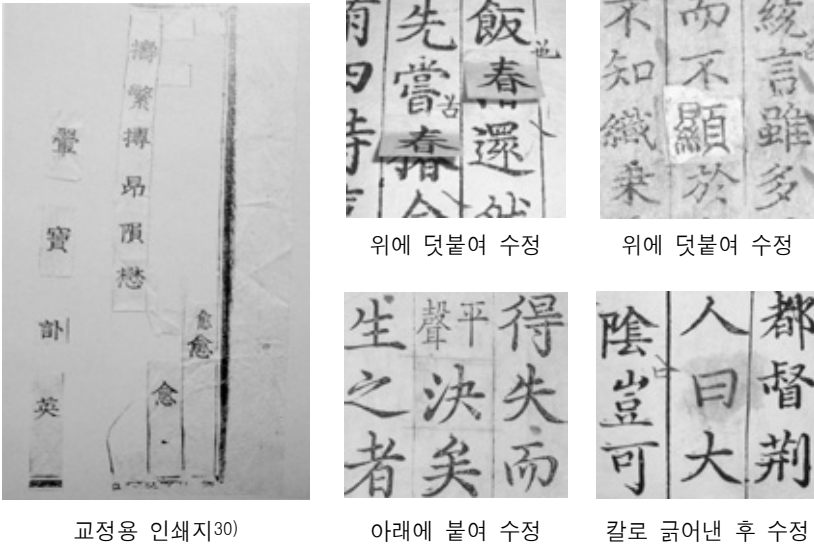 愈
愈
愈
繁搏昂懋
寶訃英
교정용 인쇄지30)
飯春還
先嘗春
四時
위에 덧붙여 수정
統言雖多
而不顯於
不知織乘
위에 덧붙여 수정
得失而
平聲決矣
生之者
아래에 붙여 수정
都督荊
人曰大
陰豈可
칼로 긁어낸 후 수정